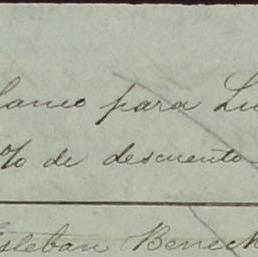 lanco para Lu
% de descuento
Esteban Beneck